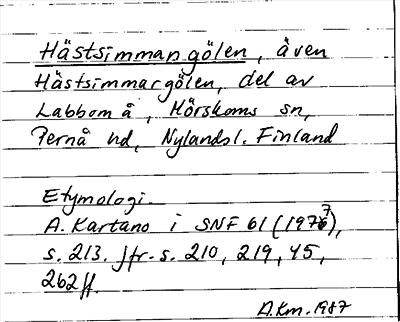 Hästsimmangölen, även
Hästsimmargölen, del av
Labbom å, Mörskoms sn,
Pernå hd, Nylands l. Finland
Etymologi.
A. Kartano i SNF 61 (1977),
s. 213. Jfr. s. 210, 219, 45,
262 ff.
A.Km. 1987